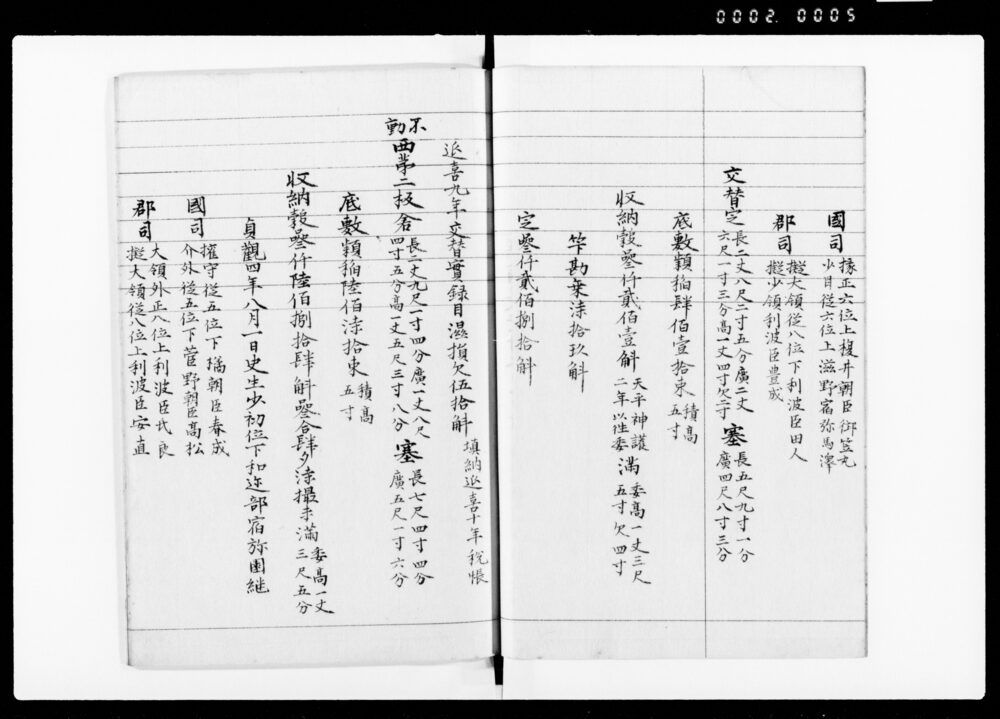 0002 0005
國司 掾正六位上榎井朝臣御笠丸
少目從六位上滋野宿祢馬澤
郡司 擬大領從八位下利波臣田人
擬少領利波臣豊成
交替定 長二丈八尺二寸五分廣二丈
六尺一寸三分高一丈四寸欠二寸
塞 長五尺九寸一分
廣四尺八寸三分
底敷穎稲肆佰壹拾束 積高
五寸
收納穀叄仟貳佰壹斛 天平神護
二年以徃委
滿 委高一丈三尺
五寸欠四寸
竿勘棄漆拾玖斛
定叄仟貳佰捌拾斛
延喜九年交替實録日濕損欠伍拾斛 填納延喜十年税帳
不動
西第二板倉 長二丈九尺一寸四分廣一丈八尺
四寸五分高一丈五尺三寸八分
塞 長七尺四寸四分
廣五尺一寸六分
底敷穎稲陸佰漆拾束 積高
五寸
收納穀叄仟陸佰捌拾肆斛叄合肆夕漆撮未滿 委高一丈
三尺五分
貞觀四年八月一日史生少初位下和迩部宿祢園継
國司 權守從五位下 朝臣春成
介外從五位下菅野朝臣高松
郡司 大領外正八位上利波臣氏良
擬大領從八位上利波臣安直